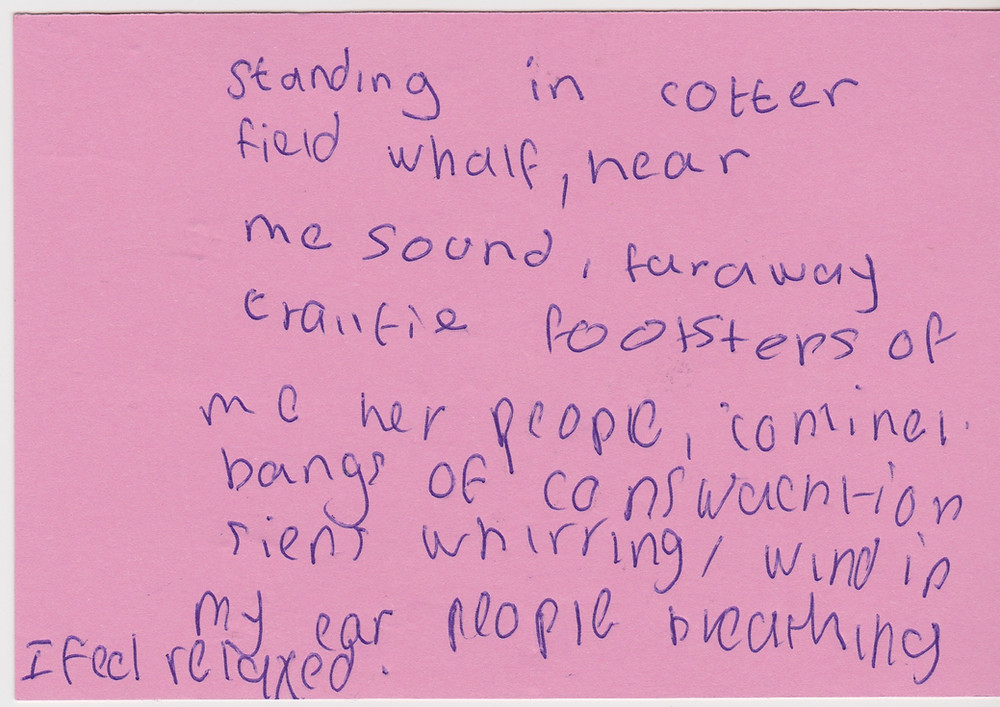 standing in cotter
field whalf, near
me sound, faraway
traffie footsteps of
me her people,
bangs of conswachtion
siens whirring, wind in
my ear people breathing
I feel relaxed.